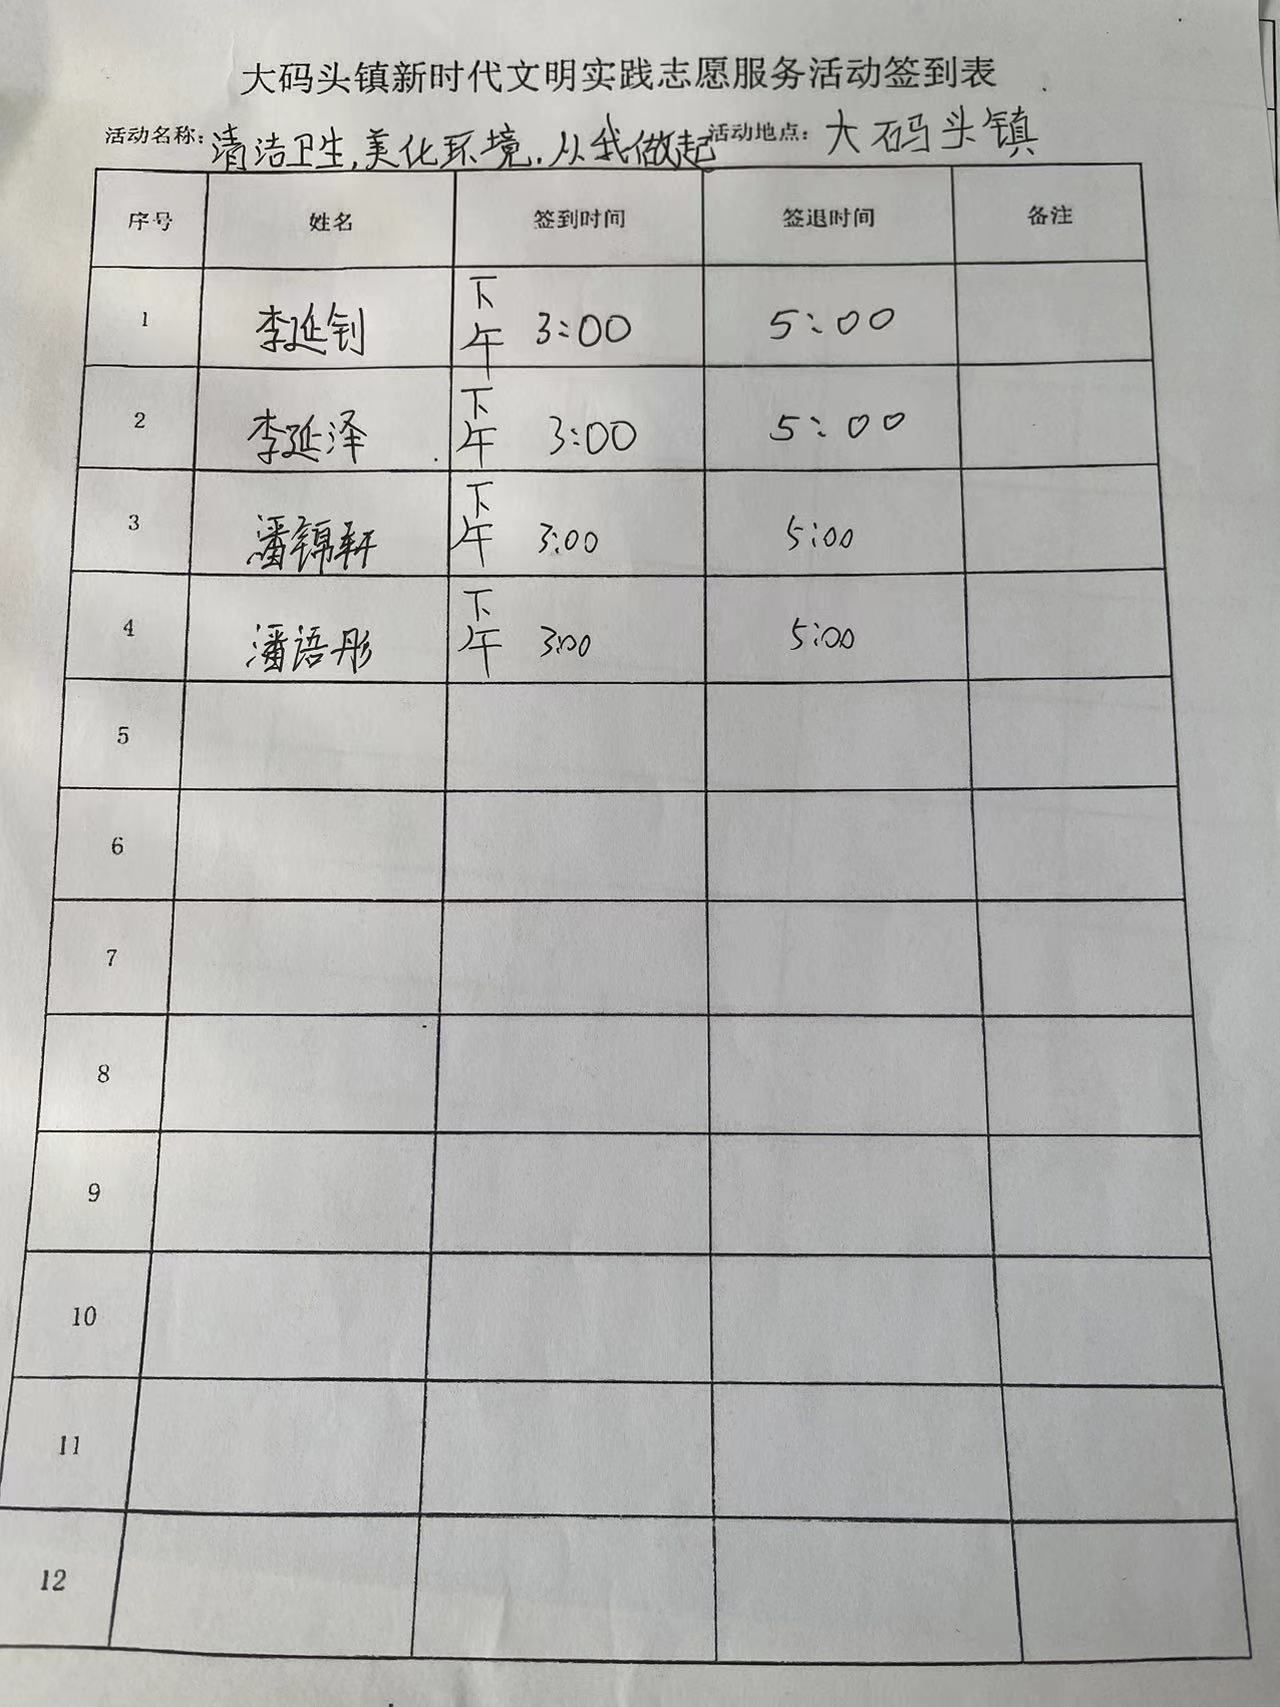 大码头镇新时代文明实践志愿服务活动签到表
活动名称：清洁卫生，美化环境．从我做起 活动地点：大码头镇
序号 姓名 签到时间 签退时间 备注
1 李延钊 下午 3:00 5:00
2 李延泽 下午 3:00 5:00
3 潘锦轩 下午 3:00 5:00
4 潘语彤 下午 3:00 5:00
5
6
7
8
9
10
11
12